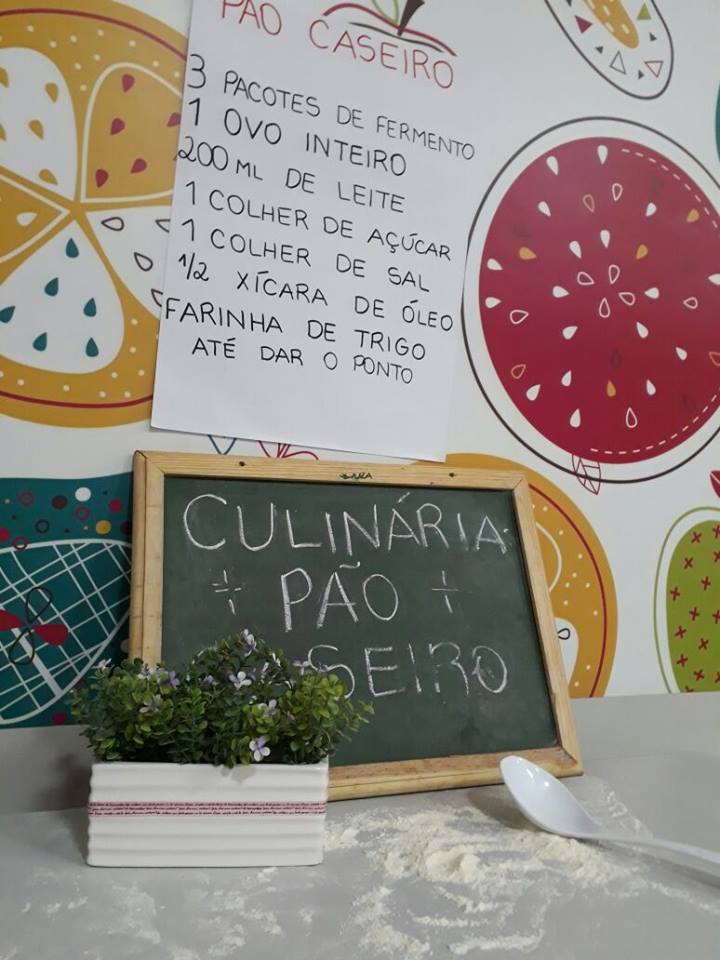 PÃO CASEIRO
3 PACOTES DE FERMENTO
1 OVO INTEIRO
200 ML DE LEITE
1 COLHER DE AÇÚCAR
1 COLHER DE SAL
1/2 XÍCARA DE ÓLEO
FARINHA DE TRIGO
ATÉ DAR O PONTO
CULINÁRIA:
PÃO
SEIRO